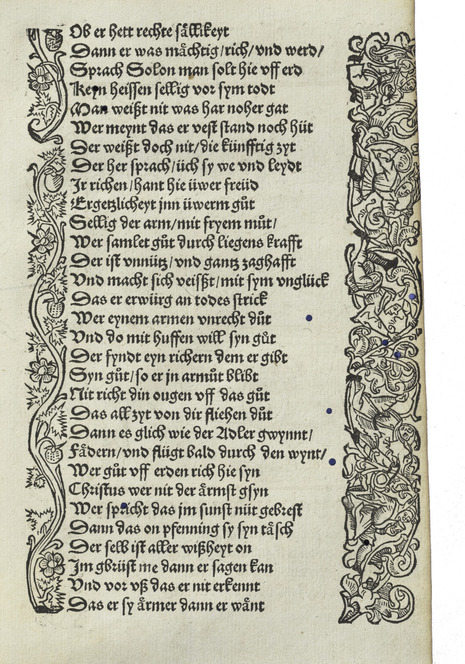 Ob er hett rechte sällikeyt
Dann er was mächtig/rich/vnd werd/
Sprach Solon man solt hie vff erd
Keyn heissen sellig vor sym todt
Man weißt nit was har noher gat
Wer meynt das er vest stand noch hüt
Der weißt doch nit/die künfftig zyt
Der her sprach/üch sy we vnd leydt
Ir richen/hant hie üwer freüd
Ergetzlicheyt jnn üwerm gůt
Sellig der arm/mit fryem můt/
Wer samlet gůt durch liegens krafft
Der ist vnnütz/vnd gantz zaghafft
Vnd macht sich veißt/mit sym vnglück
Das er erwürg an todes strick
Wer eynem armen vnrecht důt
Vnd do mit huffen will syn gůt
Der fyndt eyn richern dem er gibt
Syn gůt/so er jn armůt blibt
Nit richt din ougen vff das gůt
Das all zyt von dir fliehen důt
Dann es glich wie der Adler gwynnt/
Fådern/vnd flügt bald durch den wynt/
Wer gůt vff erden rich hie syn
Christus wer nit der ärmst gsyn
Wer spricht das jm sunst nüt gebrest
Dann das on pfenning sy syn täsch
Der selb ist aller wißheyt on
Im gbrüst me dann er sagen kan
Vnd vor vß das er nit erkennt
Das er sy ärmer dann er wänt